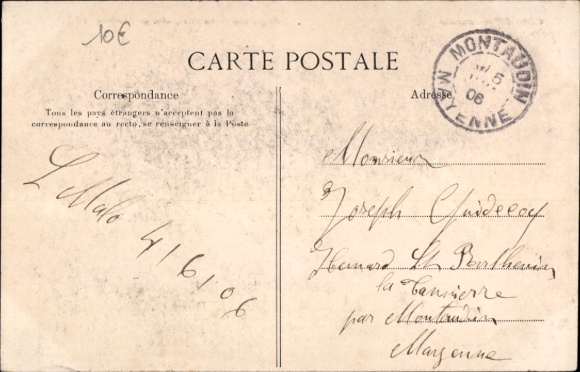 10€
CARTE POSTALE
Correspondance
Tous les pays étrangers n'acceptent pas la
correspondance au recto, se renseigner à la Poste
Adresse
MONTAUDIN
5
06
MAYENNE
St Malo 4/6/06
Monsieur
Joseph
St Barthemin
la Tannierre
par Montaudin
Mayenne